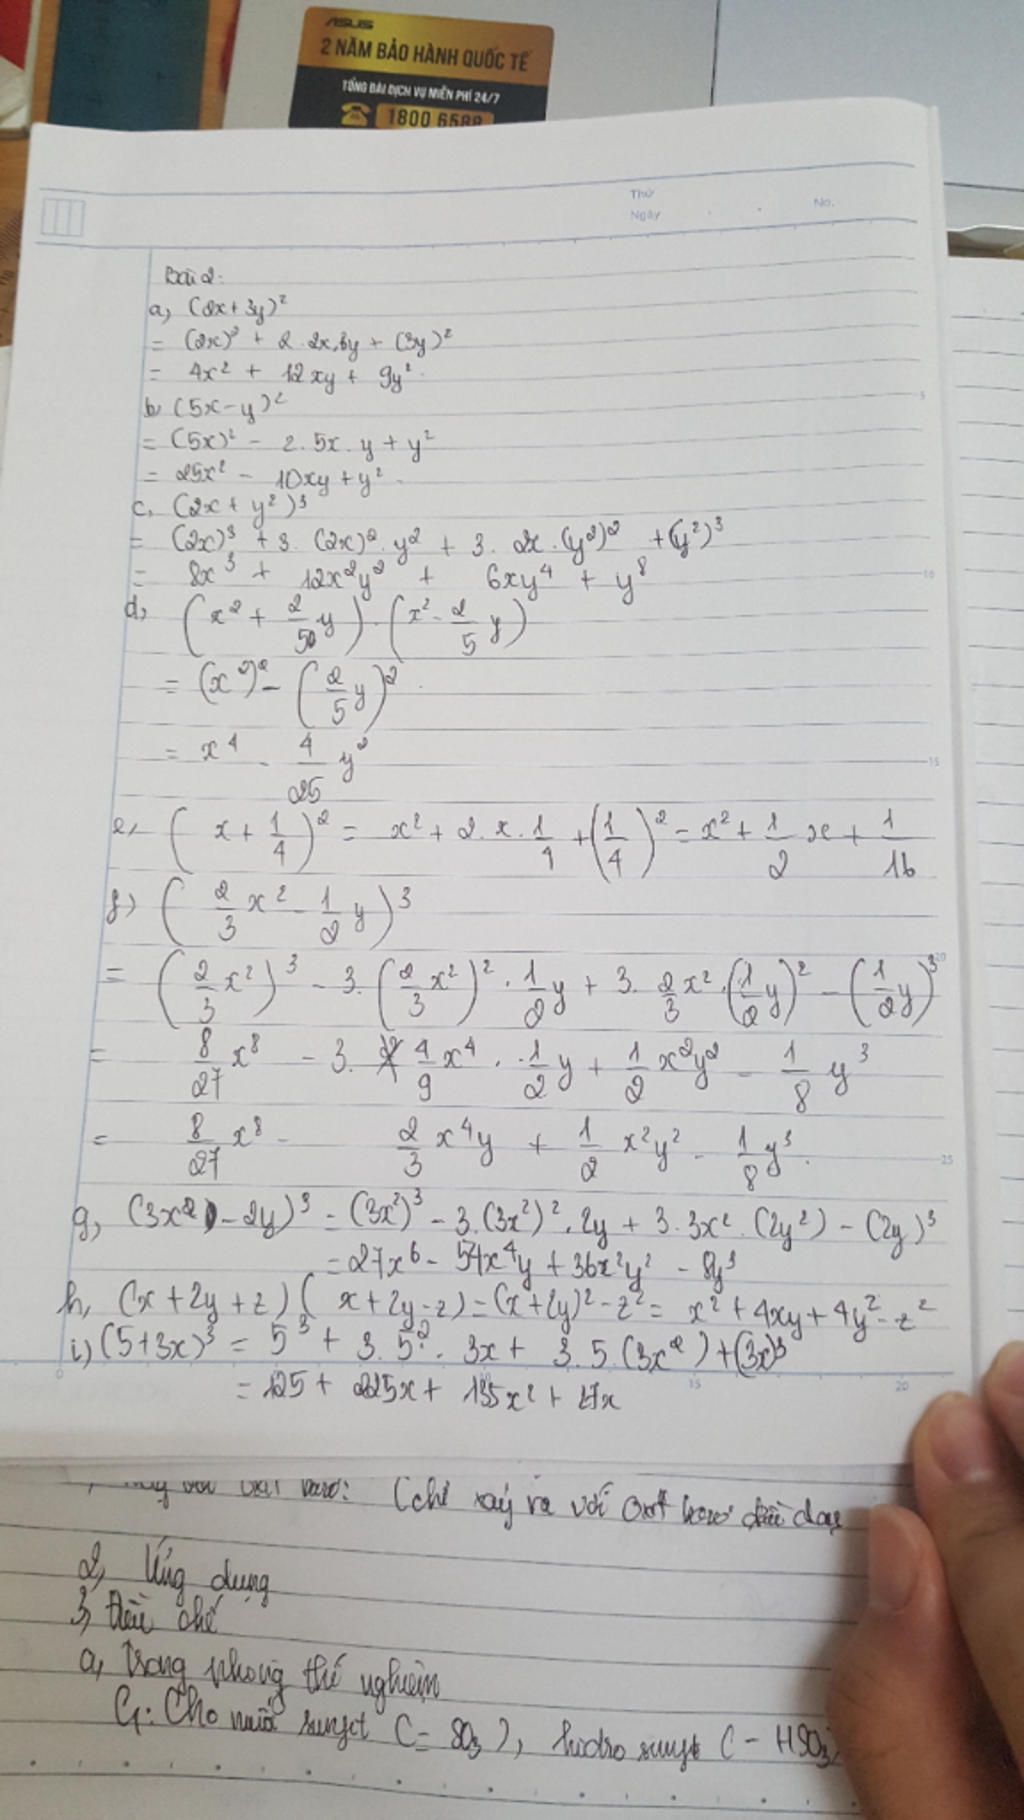 ASUS
2 NĂM BẢO HÀNH QUỐC TẾ
TỔNG ĐÀI DỊCH VỤ MIỄN PHÍ 24/7
1800 6588
Thứ
Ngày No.
Bài 2:
a, (2x+3y)²
= (2x)² + 2.2x.3y + (3y)²
= 4x² + 12xy + 9y².
b, (5x-y)²
= (5x)² - 2.5x.y + y²
= 25x² - 10xy + y².
c, (2x + y²)³
= (2x)³ + 3.(2x)².y² + 3.2x.(y²)² + (y²)³
= 8x³ + 12x²y² + 6xy⁴ + y⁸
d, (x² + 2/5 y).(x² - 2/5 y)
= (x²)² - (2/5 y)².
= x⁴ - 4/25 y²
e, (x + 1/4)² = x² + 2.x.1/4 + (1/4)² = x² + 1/2 x + 1/16
f) (2/3 x² - 1/2 y)³
= (2/3 x²)³ - 3.(2/3 x²)².1/2 y + 3.2/3 x².(1/2 y)² - (1/2 y)³
= 8/27 x⁸ - 3. 4/9 x⁴.1/2 y + 1/2 x²y² - 1/8 y³
= 8/27 x⁸ - 2/3 x⁴y + 1/2 x²y² - 1/8 y³.
g, (3x² - 2y)³ = (3x²)³ - 3.(3x²)².2y + 3.3x².(2y²) - (2y)³
= 27x⁶ - 54x⁴y + 36x²y² - 8y³
h, (x+2y+z)(x+2y-z) = (x+2y)² - z² = x² + 4xy + 4y² - z²
i) (5+3x)³ = 5³ + 3.5².3x + 3.5.(3x²) + (3x)³
= 125 + 225x + 135x² + 27x
5
10
15
20
25
0 15 20
(chỉ xảy ra với oxit bazơ
2, Ứng dụng
3, Điều chế
a, Trong phòng thí nghiệm
C1: Cho muối sunfit (= SO₃), hidro sunfit (- HSO₃